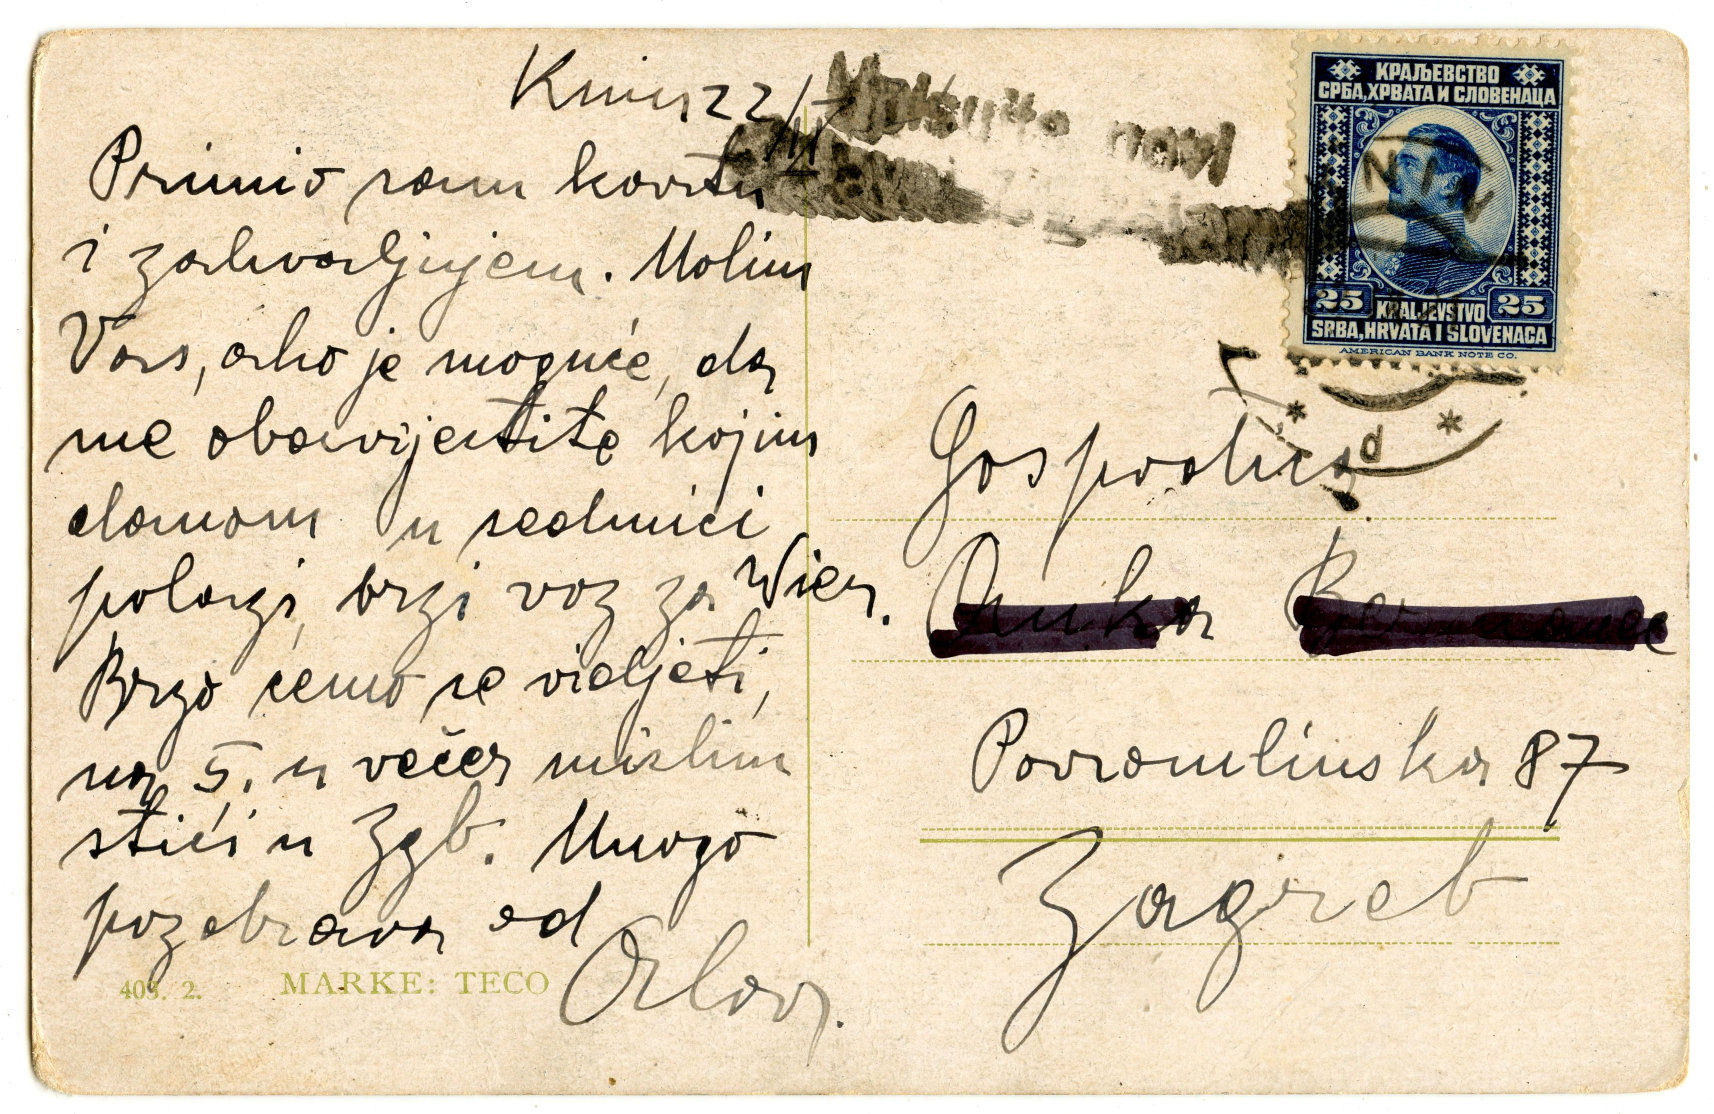 Knin 22/III
Primio sam kartu
i zahvaljujem. Molim
Vas, ako je moguće, da
me obavijestite kojim
danom u sedmici
polazi brzi voz za Wien.
Brzo ćemo se vidjeti,
na 5. u večer mislim
stići u Zgb. Mnogo
pozdrava od
403. 2. MARKE: TECO
КРАЉЕВСТВО
СРБА, ХРВАТА И СЛОВЕНАЦА
25 KRALJEVSTVO 25
SRBA, HRVATA I SLOVENACA
AMERICAN BANK NOTE CO.
KNIN
* d *
Gospodica
Anka
Povramlinska 87
Zagreb